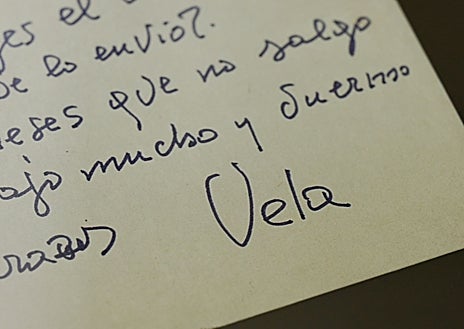 es el
lo envió?.
eses que no salgo
ajo mucho y duermo
Vela